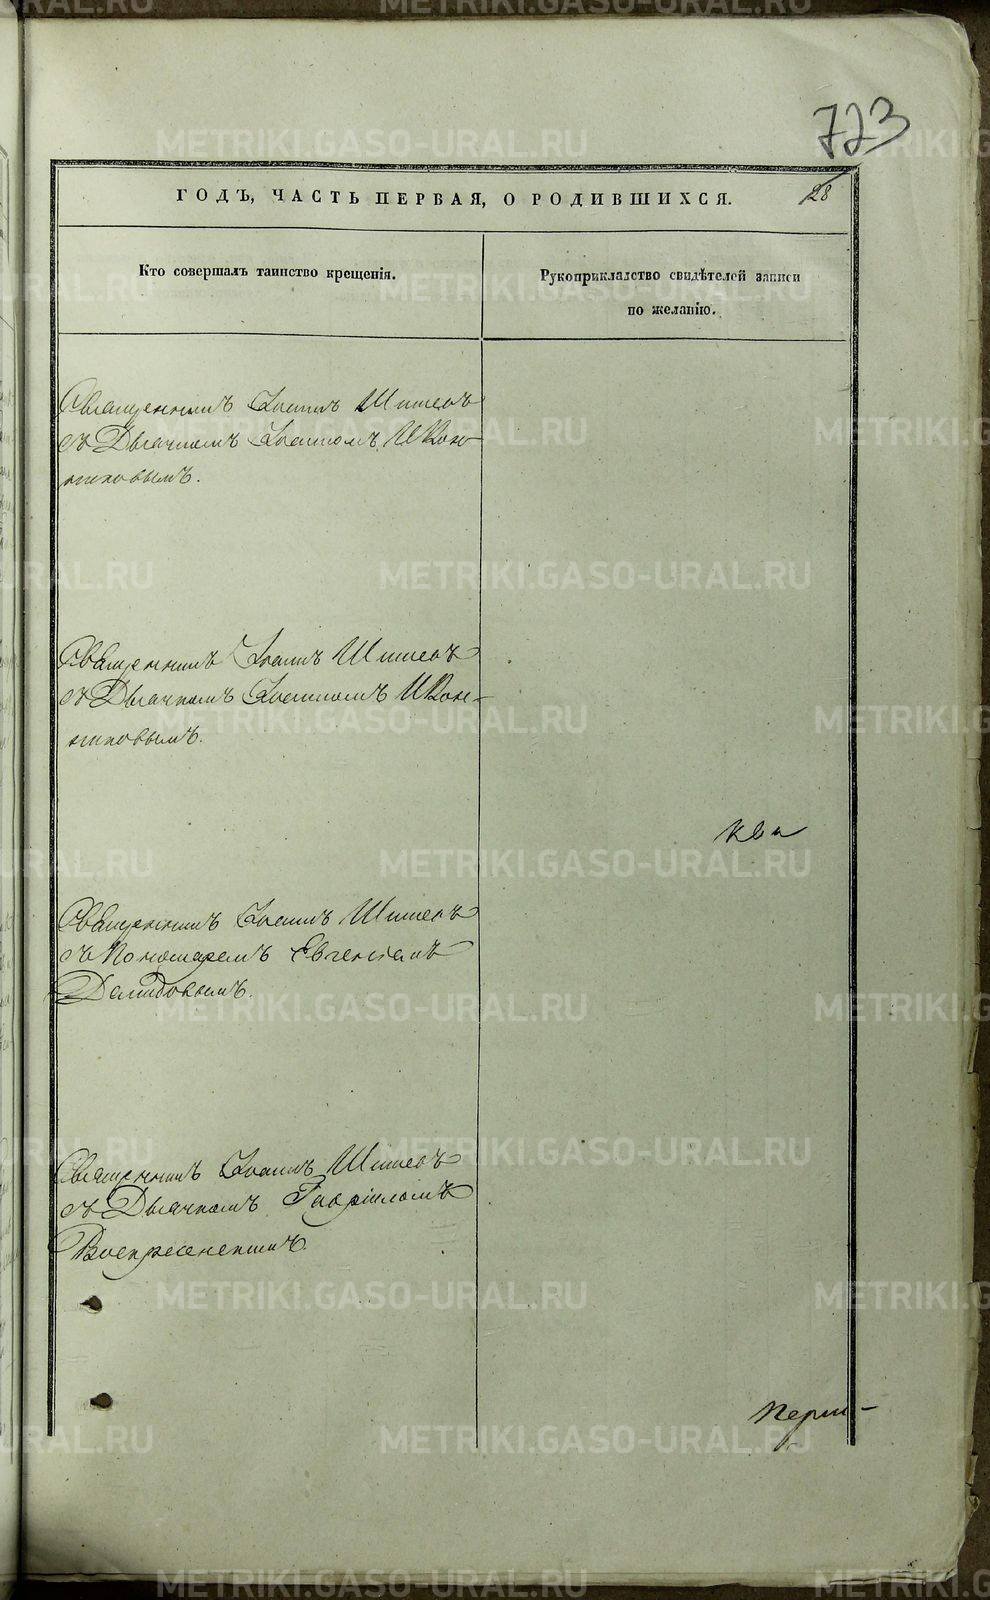 723
ГОДЪ, ЧАСТЬ ПЕРВАЯ, О РОДИВШИХСЯ.
28
Кто совершалъ таинство крещенія.
Рукоприкладство свидѣтелей записи
по желанію.
Священникъ Іоаннъ Шишевъ
съ Дьячкомъ Іоанномъ Иконо-
никовымъ.
Священникъ Іоаннъ Шишевъ
съ Дьячкомъ Іоанномъ Иконо-
никовымъ.
ква
Священникъ Іоаннъ Шишевъ
съ Пономаремъ Евгеніемъ
Демидовымъ.
Священникъ Іоаннъ Шишевъ
съ Дьячкомъ Гавріиломъ
Воскресенскимъ.
Перм-
METRIKI.GASO-URAL.RU